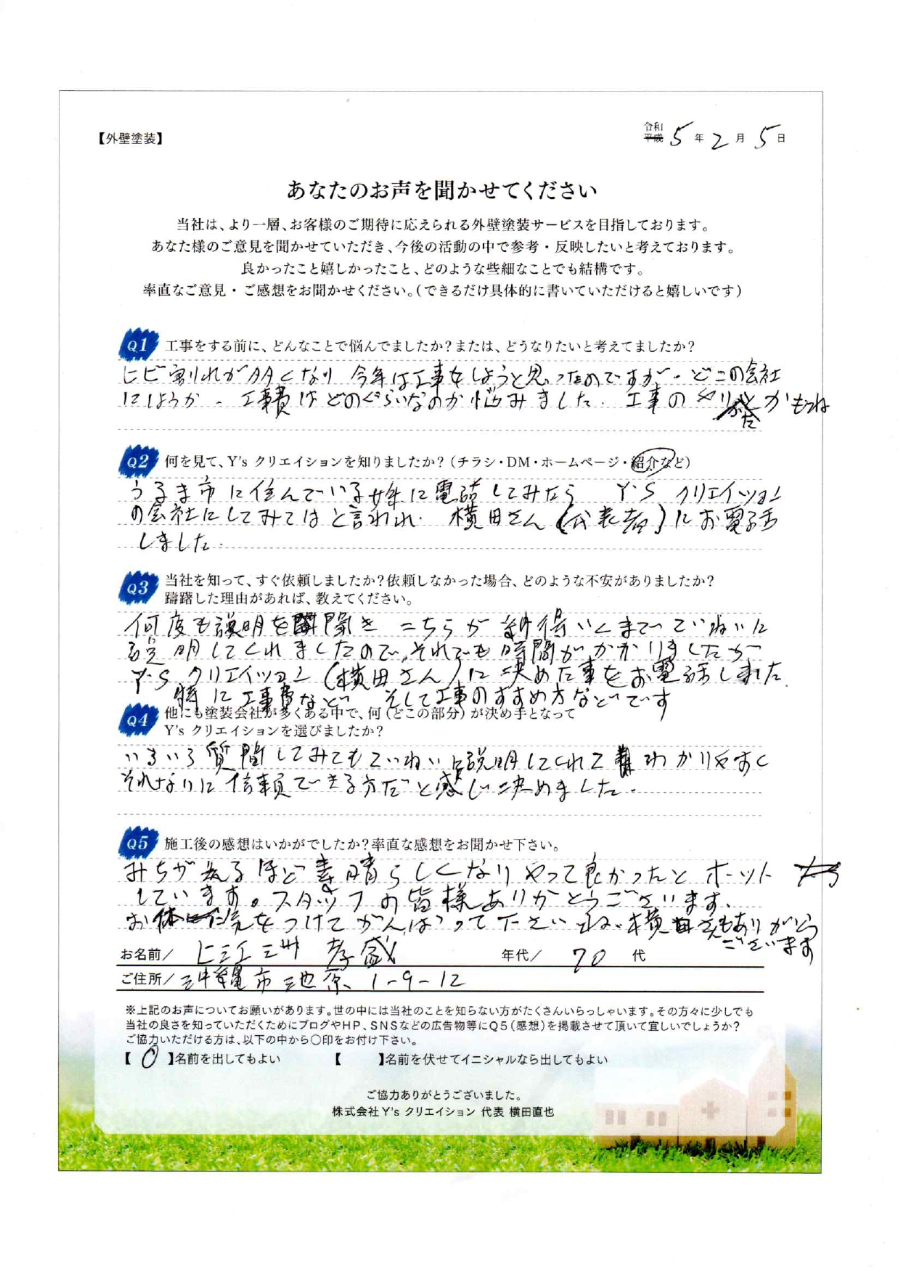 【外壁塗装】
令和
平成 5 年 2 月 5 日
あなたのお声を聞かせてください
当社は、より一層、お客様のご期待に応えられる外壁塗装サービスを目指しております。
あなた様のご意見を聞かせていただき、今後の活動の中で参考・反映したいと考えております。
良かったこと嬉しかったこと、どのような些細なことでも結構です。
率直なご意見・ご感想をお聞かせください。(できるだけ具体的に書いていただけると嬉しいです)
Q1 工事をする前に、どんなことで悩んでましたか?または、どうなりたいと考えてましたか?
ヒビ割れが多くなり 今年は工事をしようと思ったのですが、どこの会社
にしようか、工事費はどのぐらいなのか悩みました、工事のやり方かもつね
Q2 何を見て、Y's クリエイションを知りましたか?(チラシ・DM・ホームページ・紹介など)
うるま市に住んでいる姉に電話してみなら Y・S クリエイツョン
の会社にしてみてはと言われ、横田さん(代表者)にお電話
しました。
Q3 当社を知って、すぐ依頼しましたか?依頼しなかった場合、どのような不安がありましたか?
躊躇した理由があれば、教えてください。
何度も説明を聞き こちらが納得いくまでていねいに
説明してくれましたので、それでも時間がかかりましたが
Y・S クリエイツョン(横田さん)に決めた事をお電話しました、
特に工事費など、そして工事のすすめ方などです
Q4 他にも塗装会社が多くある中で、何(どこの部分)が決め手となって
Y's クリエイションを選びましたか?
いろいろ質問してみてもていねいに説明してくれて わかりやすく
それなりに信頼できる方だと感じ決めました。
Q5 施工後の感想はいかがでしたか?率直な感想をお聞かせ下さい。
みちが える ほど素晴らしくなりやって良かったとホット
しています。スタッフの皆様ありがとうございます、
お体に気をつけてがんばって下さいね、横田さんもありがとう
ございます
お名前/ 孝盛 年代/ 70 代
ご住所/沖縄市池原 1-9-12
※上記のお声についてお願いがあります。世の中には当社のことを知らない方がたくさんいらっしゃいます。その方々に少しでも
当社の良さを知っていただくためにブログやHP、SNSなどの広告物等にQ5(感想)を掲載させて頂いて宜しいでしょうか?
ご協力いただける方は、以下の中から○印をお付け下さい。
【 ○ 】名前を出してもよい 【 】名前を伏せてイニシャルなら出してもよい
ご協力ありがとうございました。
株式会社Y's クリエイション 代表 横田直也